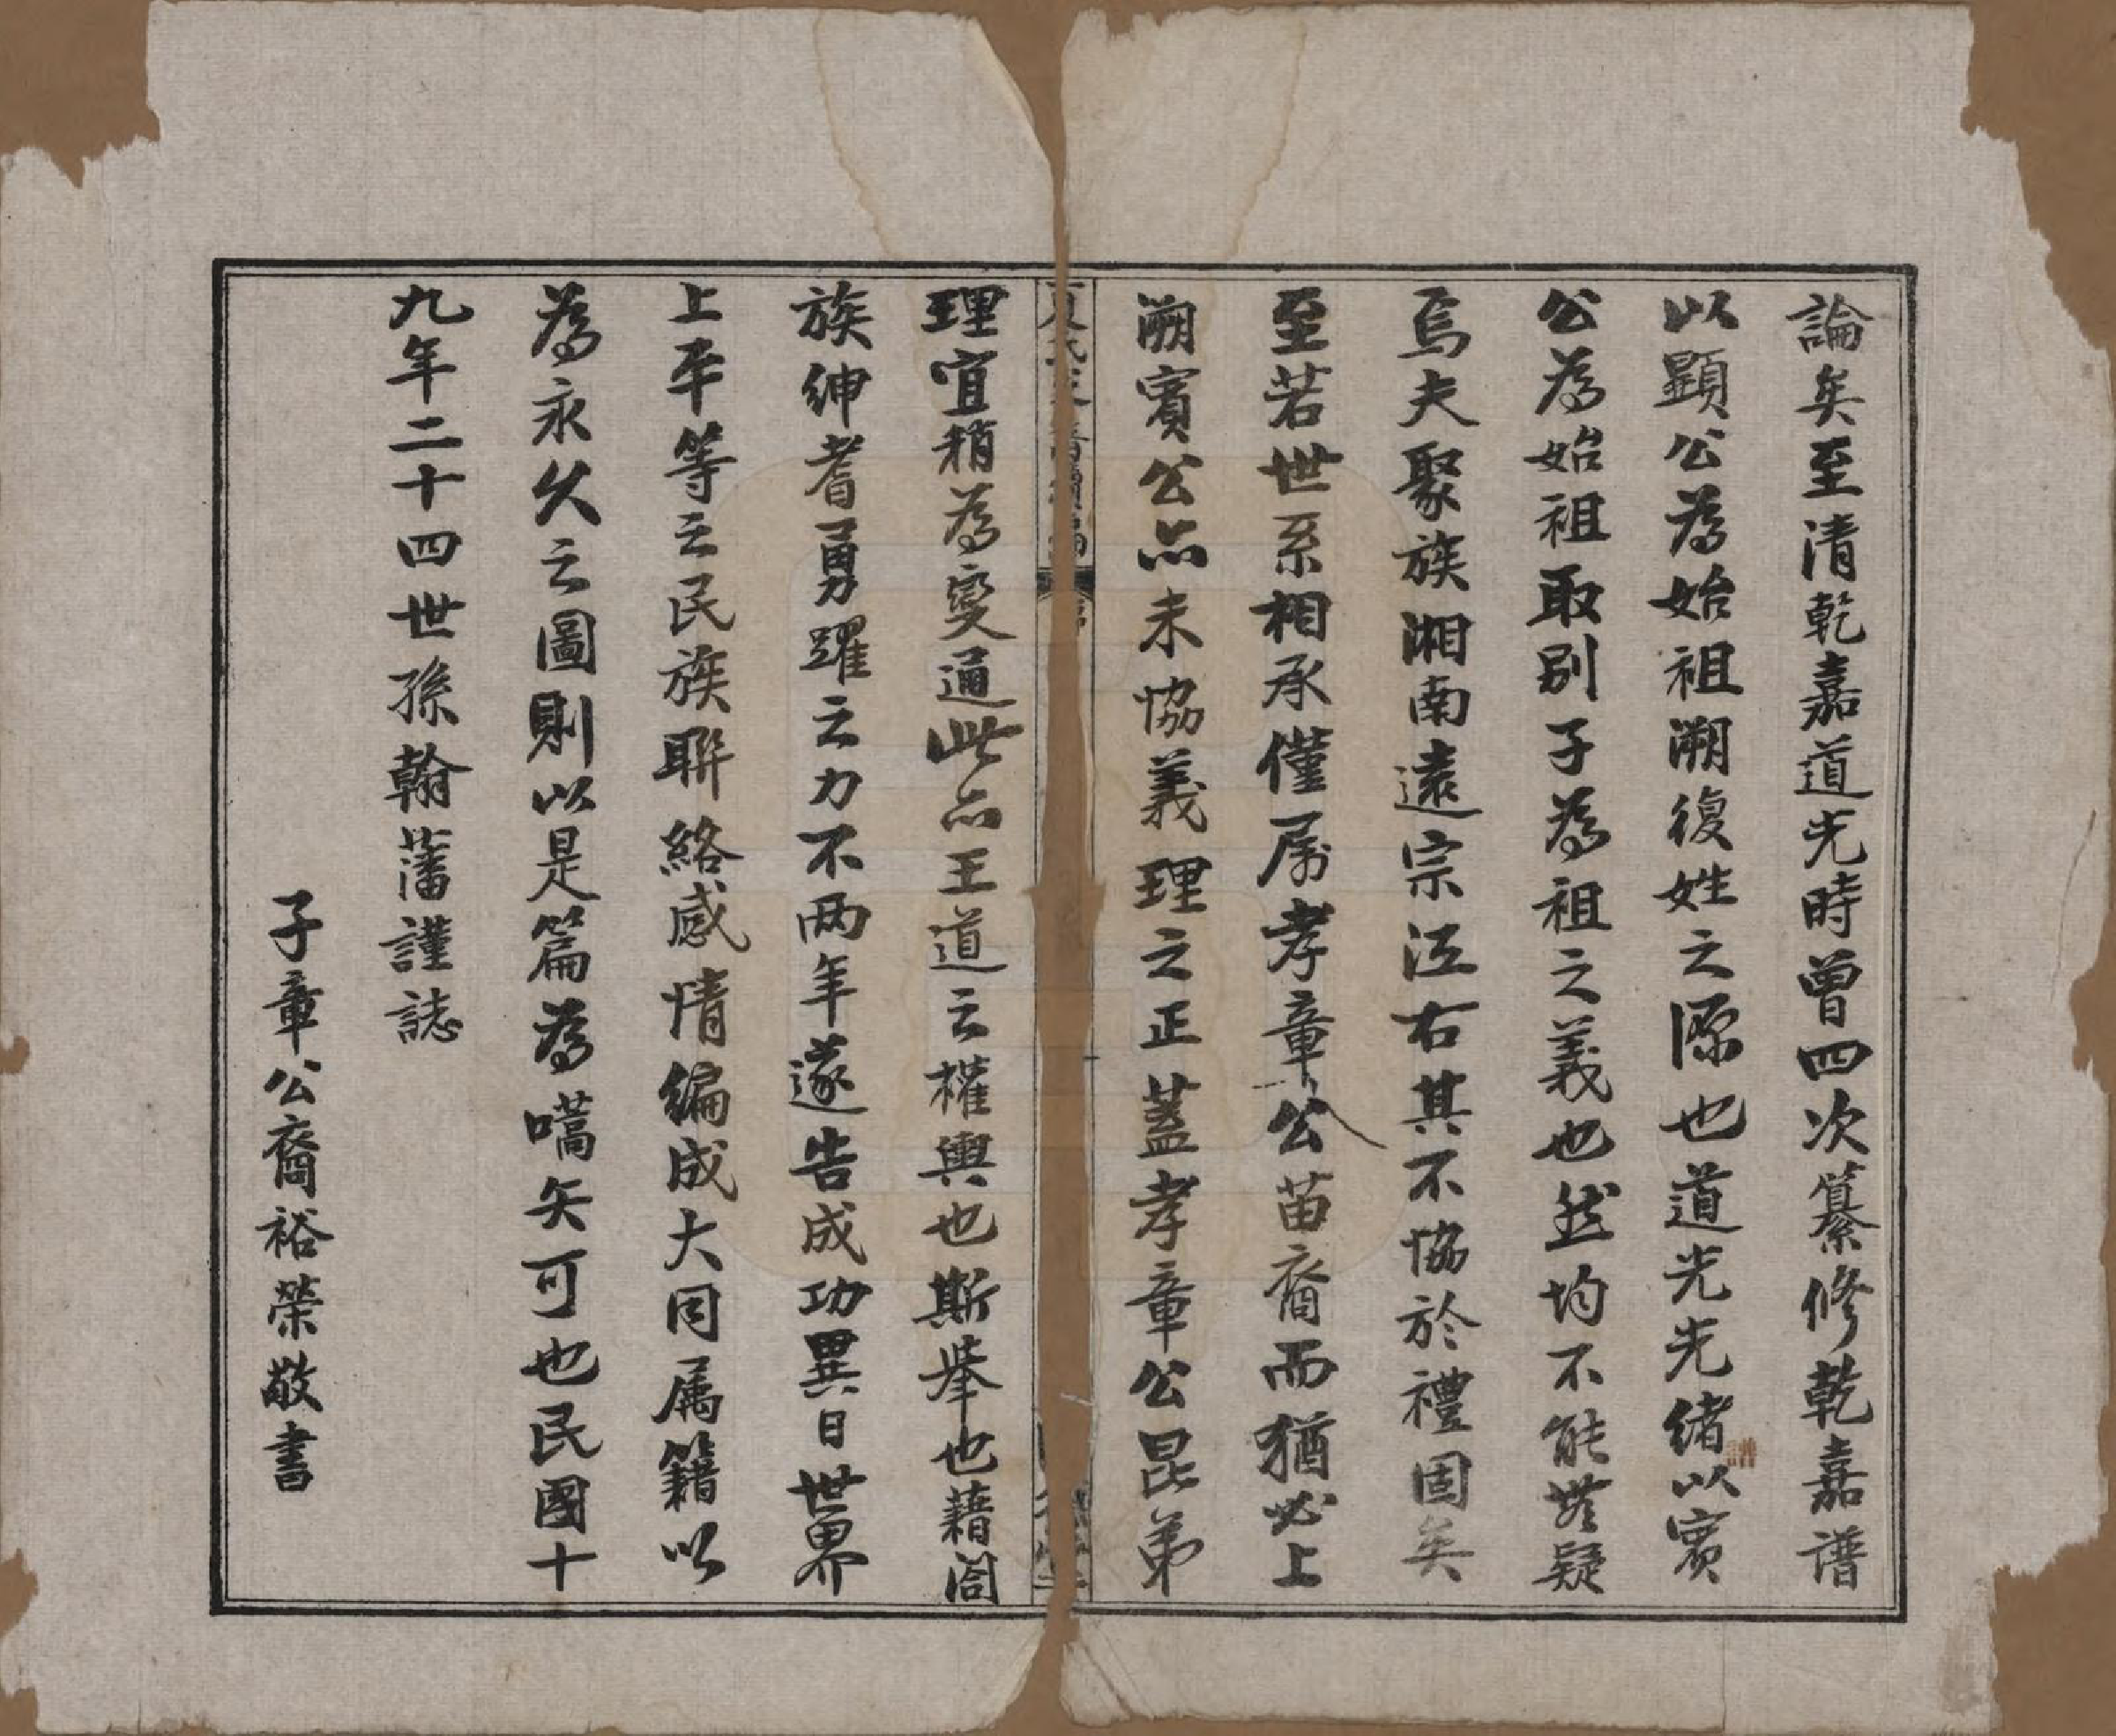 論矣至清乾嘉道光時曾四次纂修乾嘉譜
以顕公為始祖溯復姓之源也道光光緒以賓
公為始祖取別子為祖之義也然均不能無疑
焉夫聚族湘南遠宗江右其不協於禮固矣
至若世系相承僅属孝章公苗裔而猶必上
溯賓公亦未協義理之正蓋孝章公昆弟
理宜稍為變通此亦王道之權輿也斯舉也藉闔
族紳耆勇躍之力不两年遂告成功異日世界
上平等之民族聯絡感情編成大同属籍以
為永久之圖則以是篇為嚆矢可也民國十
九年二十四世孫翰藩謹誌
子章公裔裕榮敬書